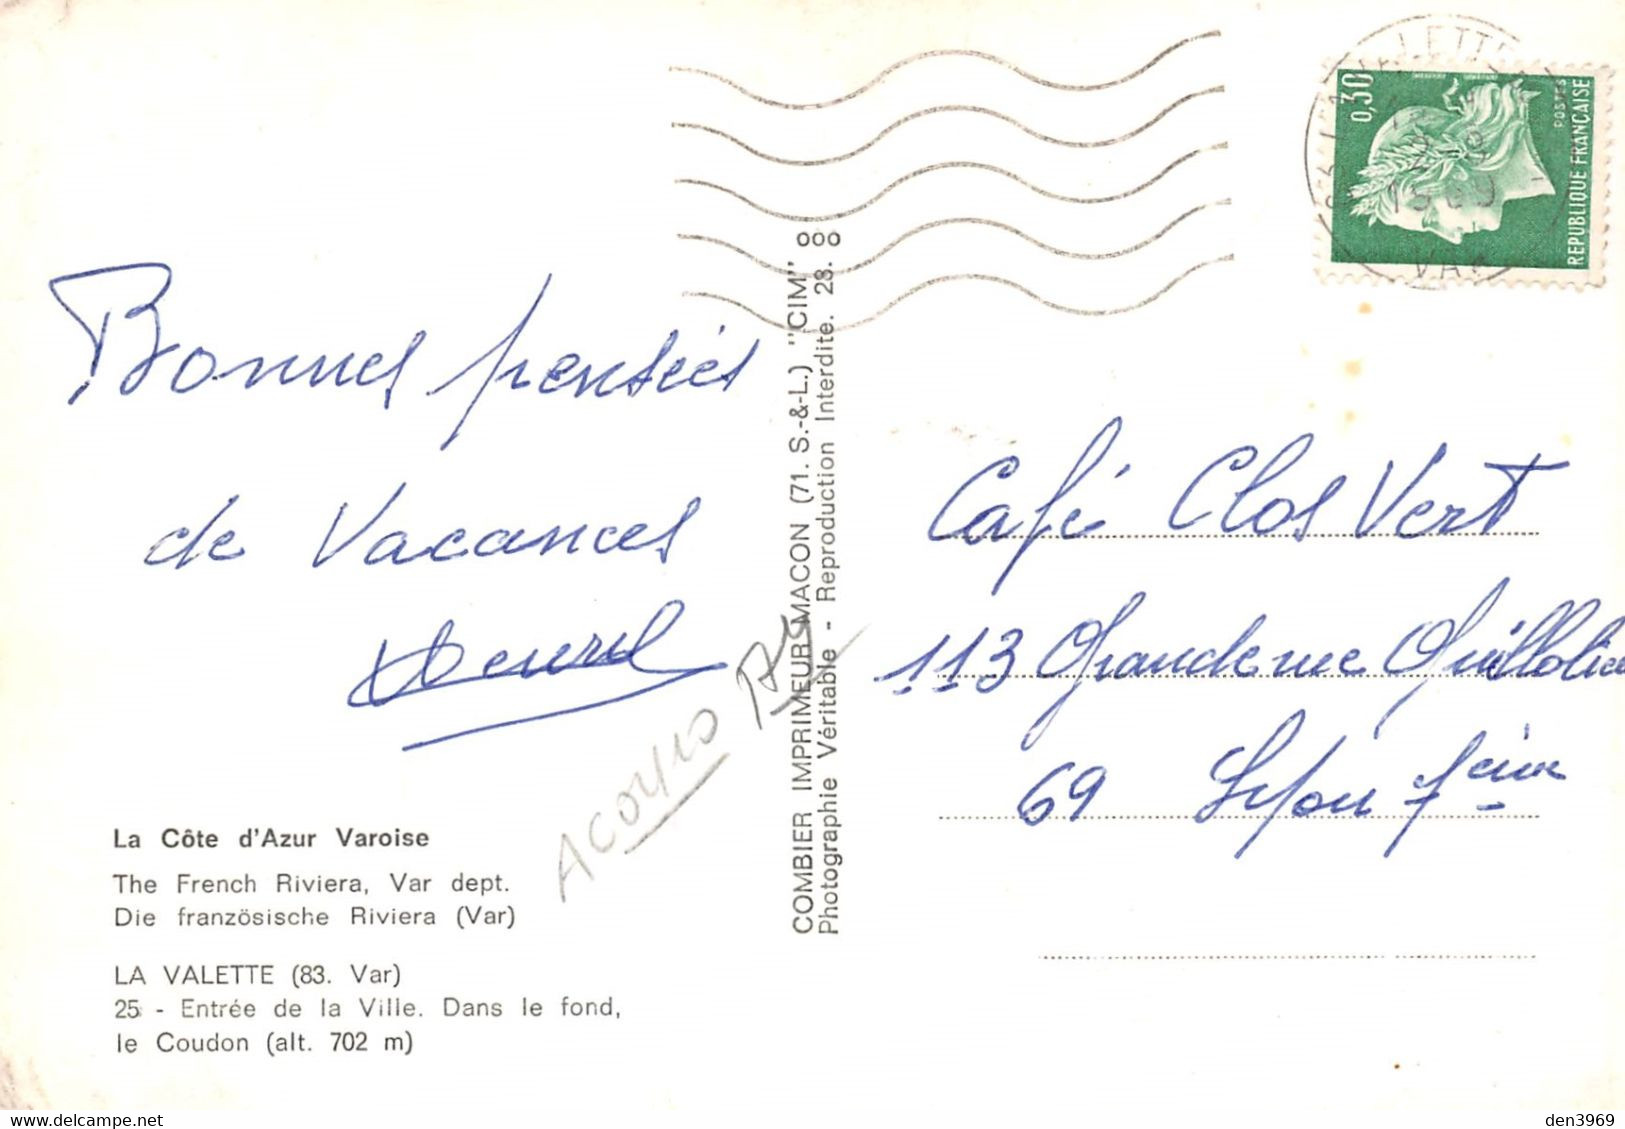 Bonnes pensées
de Vacances
La Côte d'Azur Varoise
The French Riviera, Var dept.
Die französische Riviera (Var)
LA VALETTE (83. Var)
25 - Entrée de la Ville. Dans le fond,
le Coudon (alt. 702 m)
COMBIER IMPRIMEUR MACON (71. S.-&-L.) "CIM"
Photographie Véritable - Reproduction Interdite. 28. ooo
0,30
POSTES
REPUBLIQUE FRANÇAISE
1969
VAR
Café Clos Vert
113 Grande rue Guillotière
69 Lyon 7eième
den3969